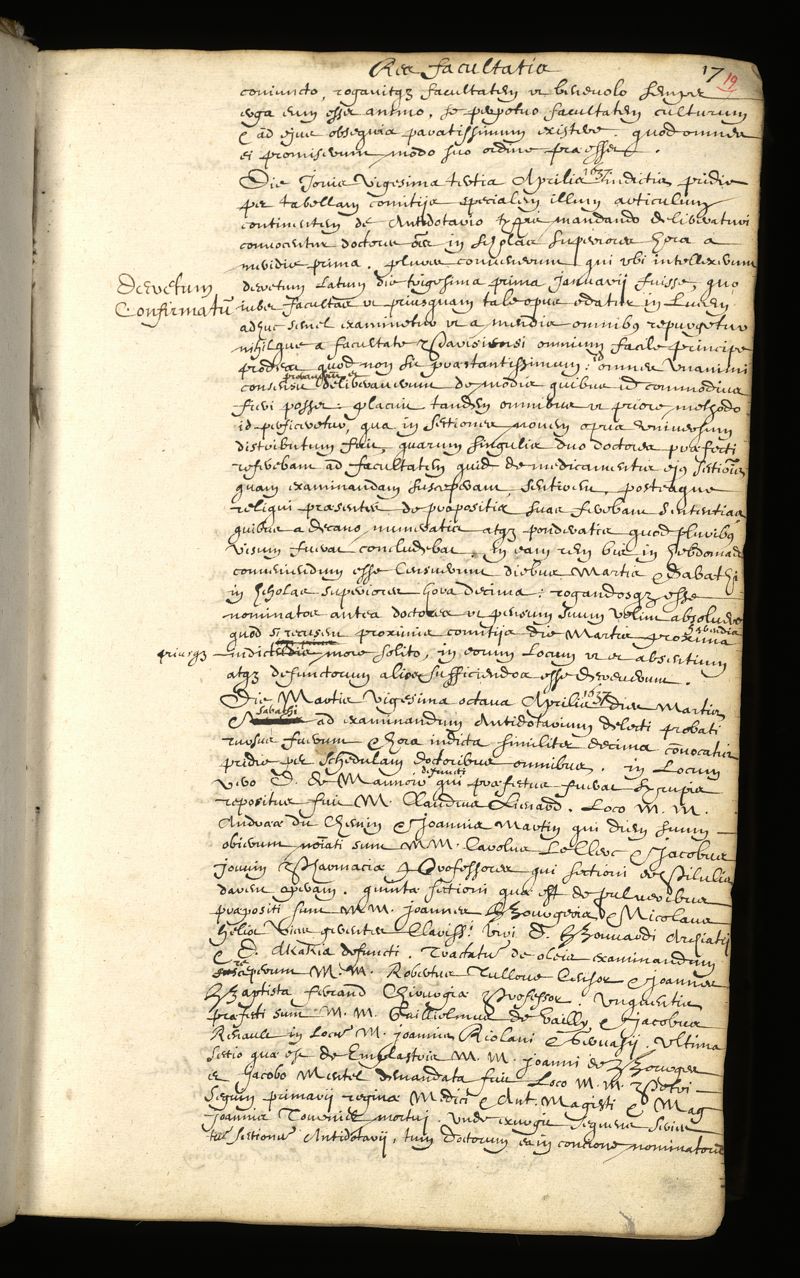 Res facultatis
17
19
coniuncto, rogavitqz facultatem ut benevolo semper
erga eum esset animo, se perpetuo facultatem culturum
& ad ejus obsequia paratissimum existere. quod omnes
ei promiserunt modo suo ordine præesset.
Die Jovis vigesima tertia Aprilis 1637 indictis pridie
per tabellam comitijs specialem illum articulum
continentem de Antidotario typis mandando deliberaturi
convocentur doctores oēs in scholas superiores hora a
meridie prima. plures convenerunt qui ubi intellexerunt
Decretum
Confirmatū
decretum latum die trigesima prima Januarij fuisse, quo
iubet Facultas ut priusquam tale opus edatur in lucem
adhuc semel examinetur ut a mendis omnibus repurgetur
nihilque a facultate Parisiensi omnium facile principe
prodeat quod non sit præstantissimum: omnes unanimi
consensu deliberaverunt de modis quibus id commodius
fieri posset: placuit tandem omnibus ut priore methodo
id perficeretur, qua in sectiones novem opus universum
distributum fuit, quarum singulis duo doctores præfecti
referebant ad facultatem quid de medicamentis ejus sectionis
quam examinandam susceperant, sentirent, posteaque
reliqui præsentes de propositis suas ferebant sententias
quibus a decano numeratis atqz ponderatis quod pluribus
visum fuerat concludebat. in eam rem bis in hebdomade
conveniendum esse censuerunt diebus Martis & Sabathi
in scholas superiores hora decima: rogandosqz esse
nominatos antea doctores ut pensum suum velint absolvere
quod si recusent proximis comitijs die Martis proxima habendis
priusqz
indictis more solito, in eorum locum ut et absentium
atqz defunctorum alios sufficiendos esse decreverunt.
Die Martis vigesima octava Aprilis 1637 dies Martis
& Sabathi ad examinandum Antidotarium delecti probati
rursus fuerunt & hora indicta similiter decima convocatis
pridie per schedulam doctoribus omnibus. in locum
viro D. de Mannoir defuncti qui præfectus fuerat syrupis
repositus fuit M. Claudius Lienard. Loco M. M.
Andreæ du Chemin & Joannis Martin qui diem suum
obierunt noīati sunt MM. Carolus Le Clerc & Jacobus
Jouvin Pharmaciæ Professores qui sectioni de Pilulis
darent operam. quintæ sectioni quæ est de pulveribus
præpositi sunt MM. Joannes Bourgeois & Nicolaus
Heliot vices gerentes clariss. viri D. Bouvardi Archiatri
& D. Akakia defuncti. Tractatum de oleis examinandum
susceperunt M. M. Robertus Tulloue Censor & Joannes
Baptista Ferrand Chirurgiæ Professor. Unguentis
præfecti sunt M. M. Guillielmus de Vailly & Jacobus
Renault in locū M. Joannis Riolani & Gervasij. Ultima
sectio quæ est de Emplastris M. M. Joanni de Bourges
et Jacobo Mentel demandata fuit loco M. M. Petri
Seguin primarij reginæ Medici & Ant. Magistri & Mag
Joannis mortui. unde exurgit sequens series
tū sectionū Antidotarij, tum doctorum ea in concione nominatorū